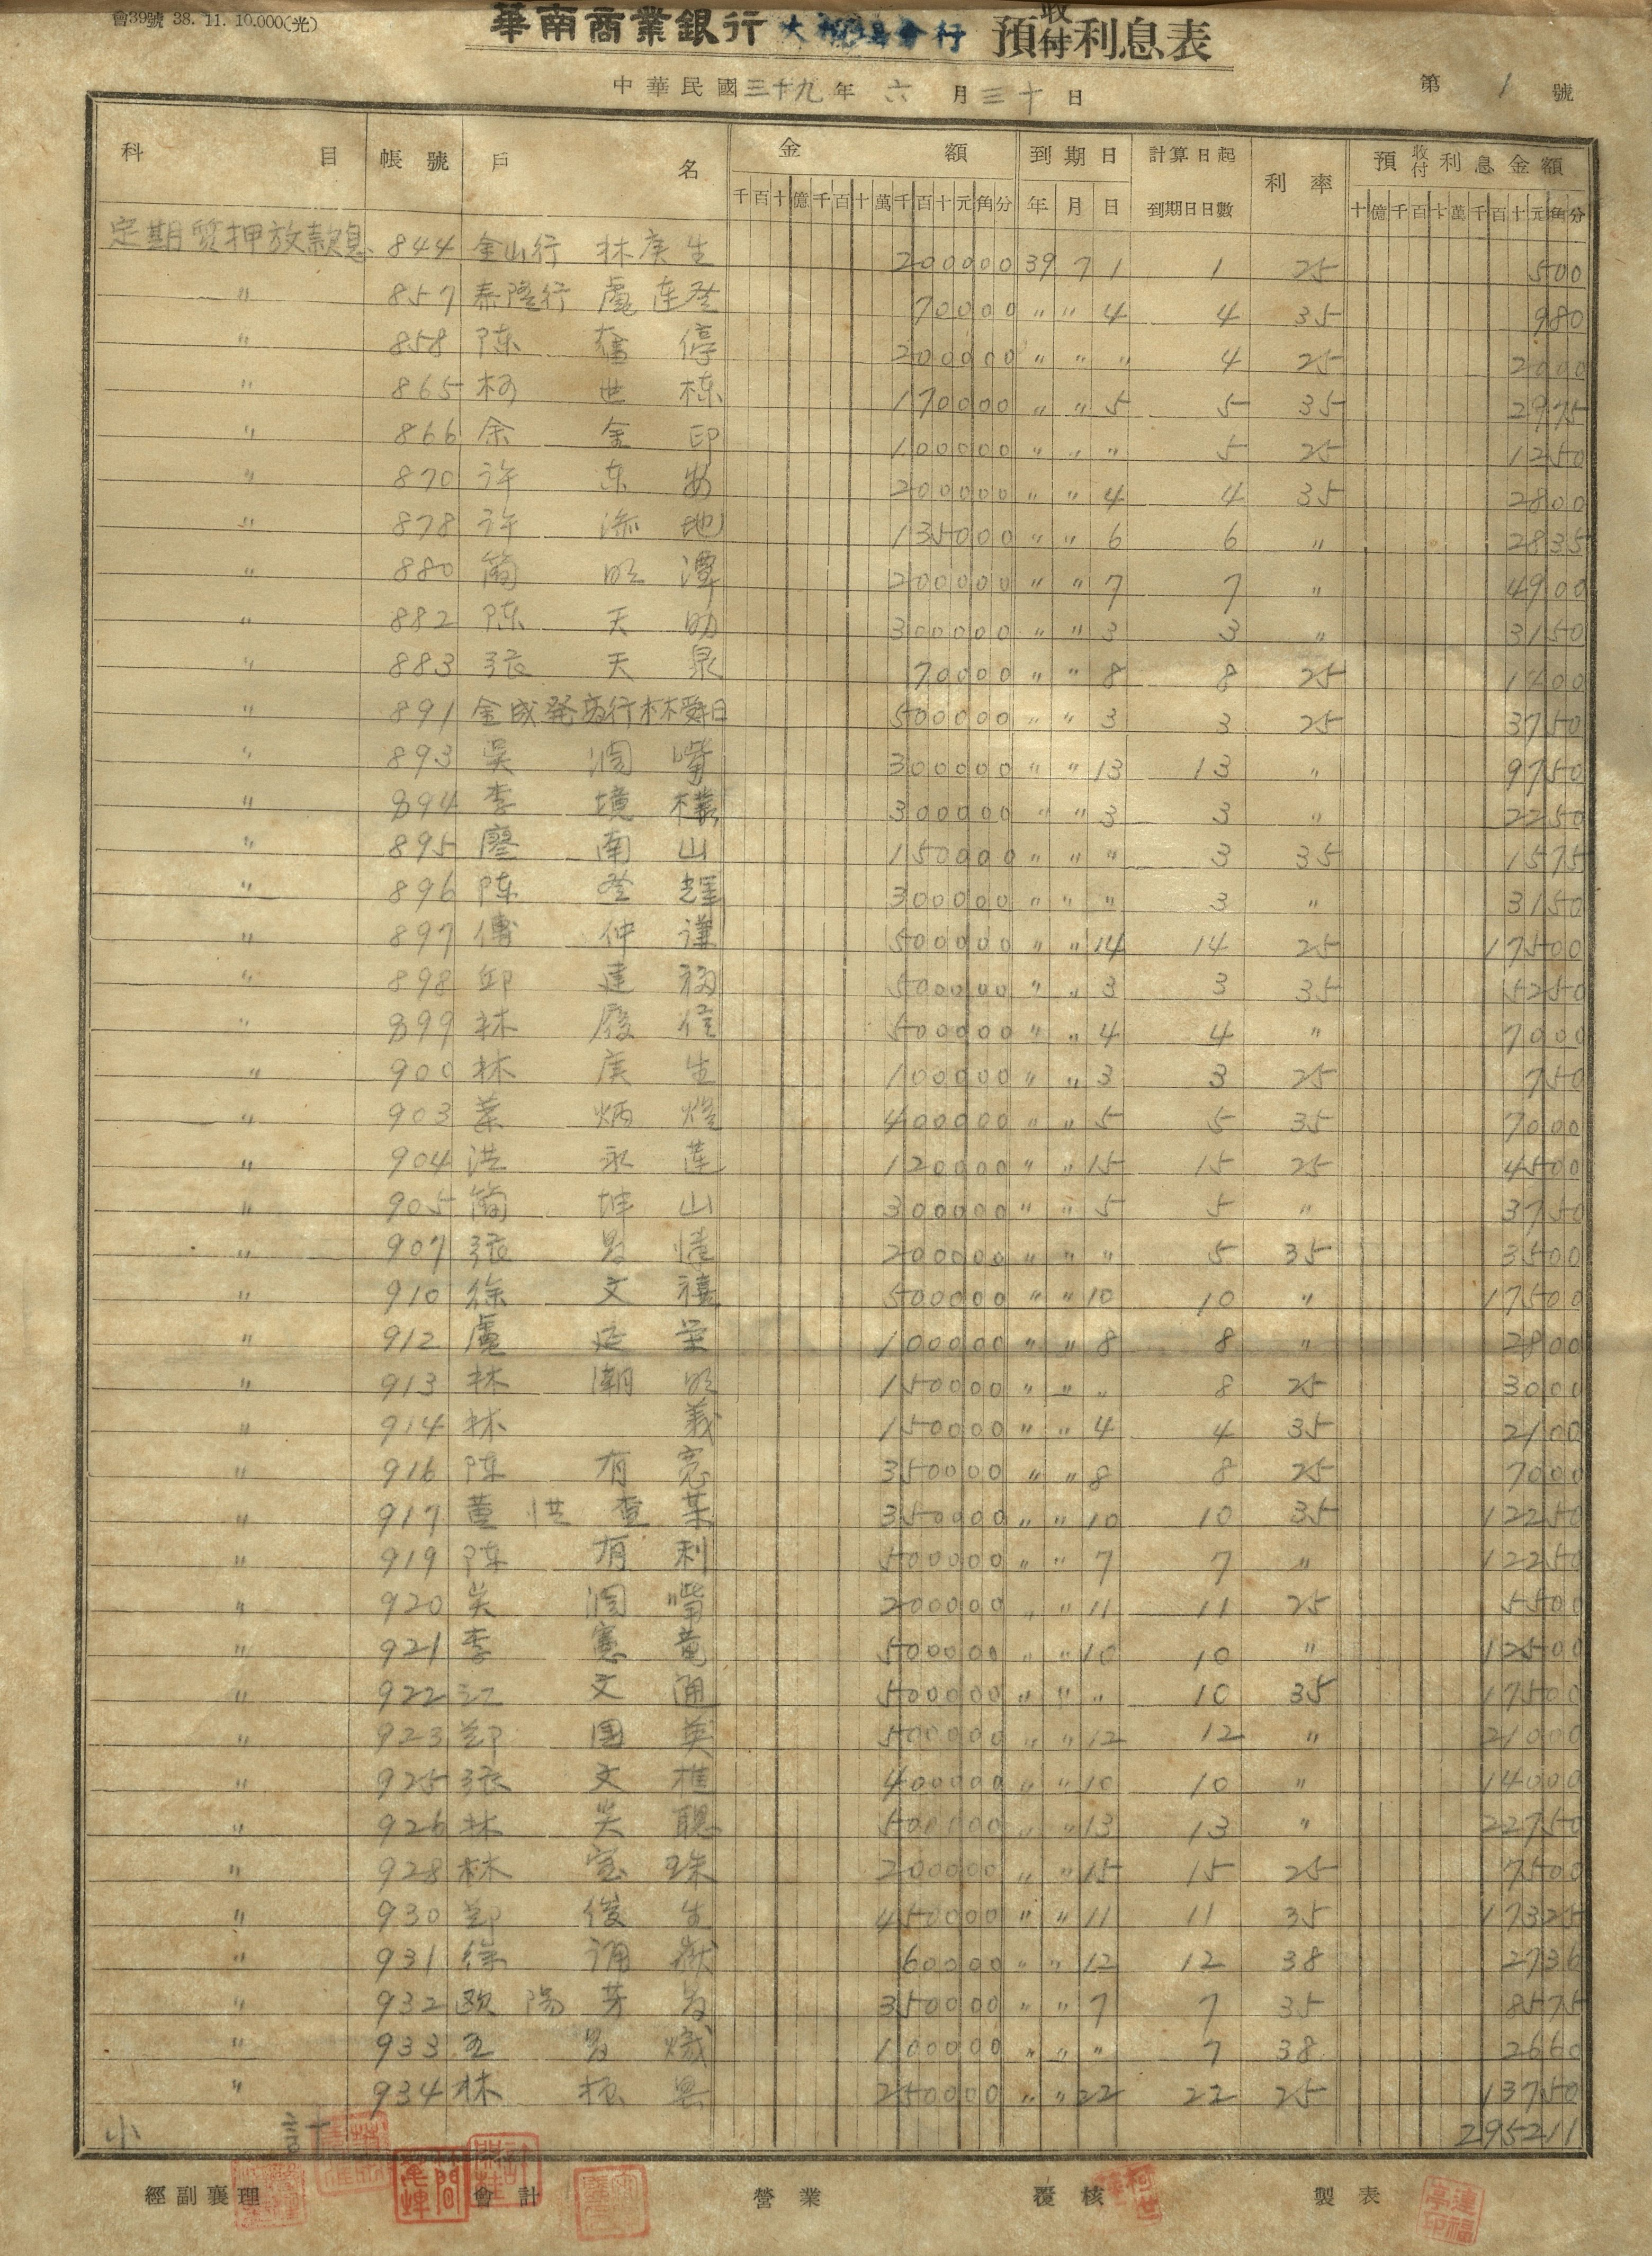 會39號 38. 11. 10.000(光)
華南商業銀行 大稻埕分行 預收付利息表
中華民國三十九年六月三十日 第1號
科目 帳號 戶名 金額 到期日 計算日起到期日日數 利率 預收付利息金額
千百十億千百十萬千百十元角分 年月日 十億千百十萬千百十元角分
定期質押放款息 844 金山行 林庚生 200000 39 7 1 1 25 500
〃 857 泰隆行 盧连登 70000 〃 〃 4 4 35 980
〃 858 陈 停 200000 〃 〃 〃 4 25 2000
〃 865 柯世栋 170000 〃 〃 5 5 35 2975
〃 866 余金印 100000 〃 〃 〃 5 25 1250
〃 870 许东 200000 〃 〃 4 4 35 2800
〃 878 许添地 135000 〃 〃 6 6 〃 2835
〃 880 簡明潭 200000 〃 〃 7 7 〃 4900
〃 882 陈天助 300000 〃 〃 3 3 〃 3150
〃 883 張天泉 70000 〃 〃 8 8 25 1400
〃 891 金成發商行林舜日 500000 〃 〃 3 3 25 3750
〃 893 吳澗嘴 300000 〃 〃 13 13 〃 9750
〃 894 李境樸 300000 〃 〃 3 3 〃 2250
〃 895 廖南山 150000 〃 〃 〃 3 35 1575
〃 896 陈登輝 300000 〃 〃 〃 3 〃 3150
〃 897 傅仲謹 500000 〃 〃 14 14 25 17500
〃 898 邱建福 500000 〃 〃 3 3 35 5250
〃 899 林 500000 〃 〃 4 4 〃 7000
〃 900 林庚生 100000 〃 〃 3 3 25 750
〃 903 葉炳煌 400000 〃 〃 5 5 35 7000
〃 904 洪永蓮 120000 〃 〃 15 15 25 4500
〃 905 簡坤山 300000 〃 〃 5 5 〃 3750
〃 907 張 200000 〃 〃 〃 5 35 3500
〃 910 徐文禧 500000 〃 〃 10 10 〃 17500
〃 912 盧 100000 〃 〃 8 8 〃 2800
〃 913 林潮明 150000 〃 〃 〃 8 25 3000
〃 914 林義 150000 〃 〃 4 4 35 2100
〃 916 陈有寬 350000 〃 〃 8 8 25 7000
〃 917 董洪查某 350000 〃 〃 10 10 35 12250
〃 919 陈有利 500000 〃 〃 7 7 〃 12250
〃 920 吴澗嘴 200000 〃 〃 11 11 25 5500
〃 921 李憲章 500000 〃 〃 10 10 〃 12500
〃 922 江文通 500000 〃 〃 〃 10 35 17500
〃 923 鄭国英 500000 〃 〃 12 12 〃 21000
〃 925 張文權 400000 〃 〃 10 10 〃 14000
〃 926 林吴聰 500000 〃 〃 13 13 〃 22750
〃 928 林宝珠 200000 〃 〃 15 15 25 7500
〃 930 鄭俊生 450000 〃 〃 11 11 35 17325
〃 931 徐 60000 〃 〃 12 12 38 2736
〃 932 欧陽芽 350000 〃 〃 7 7 35 8575
〃 933 王 100000 〃 〃 〃 7 38 2660
〃 934 林振 250000 〃 〃 22 22 25 13750
小計 295211
經副襄理 會計 營業 覆核 製表
連福亭印